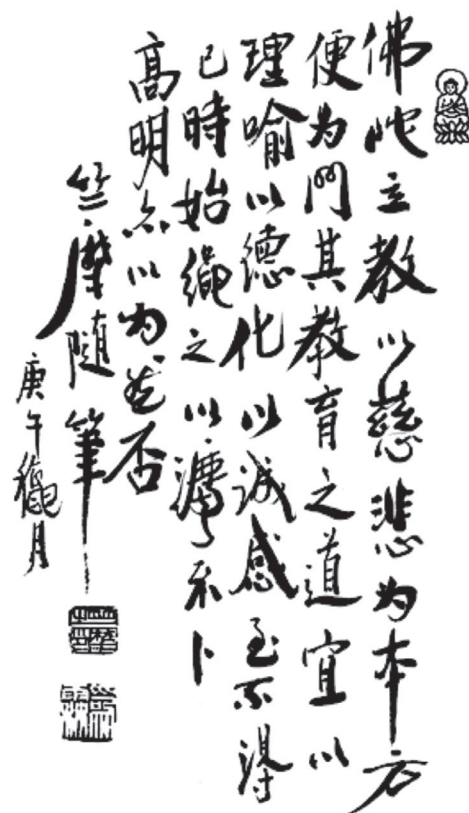 佛陀立教以慈悲为本方
便为門其教育之道宜以
理喻以德化以誠感至不得
已時始繩之以灋未卜
高明亦以为否
竺摩隨筆
庚午龝月